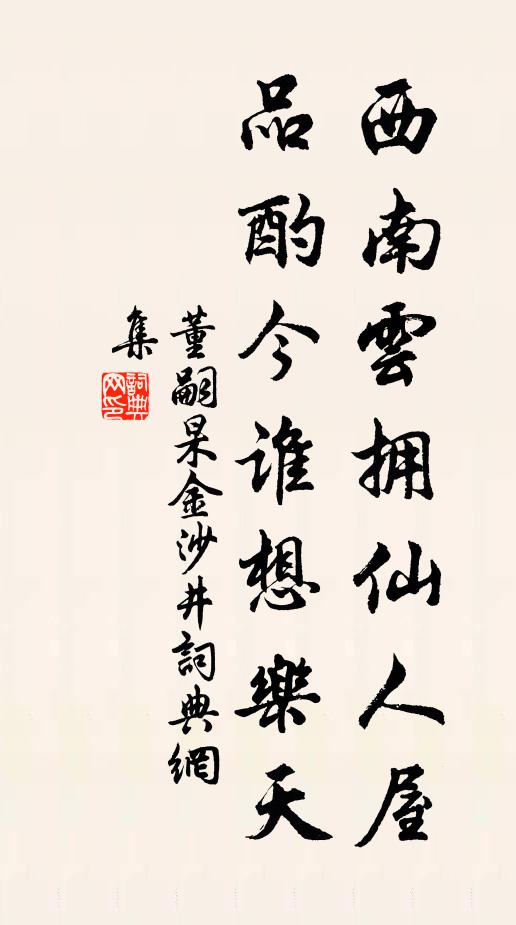 西南雲拥仙人屋
品酌今谁想樂天
董嗣杲金沙井詞典網
集
詞典
网印